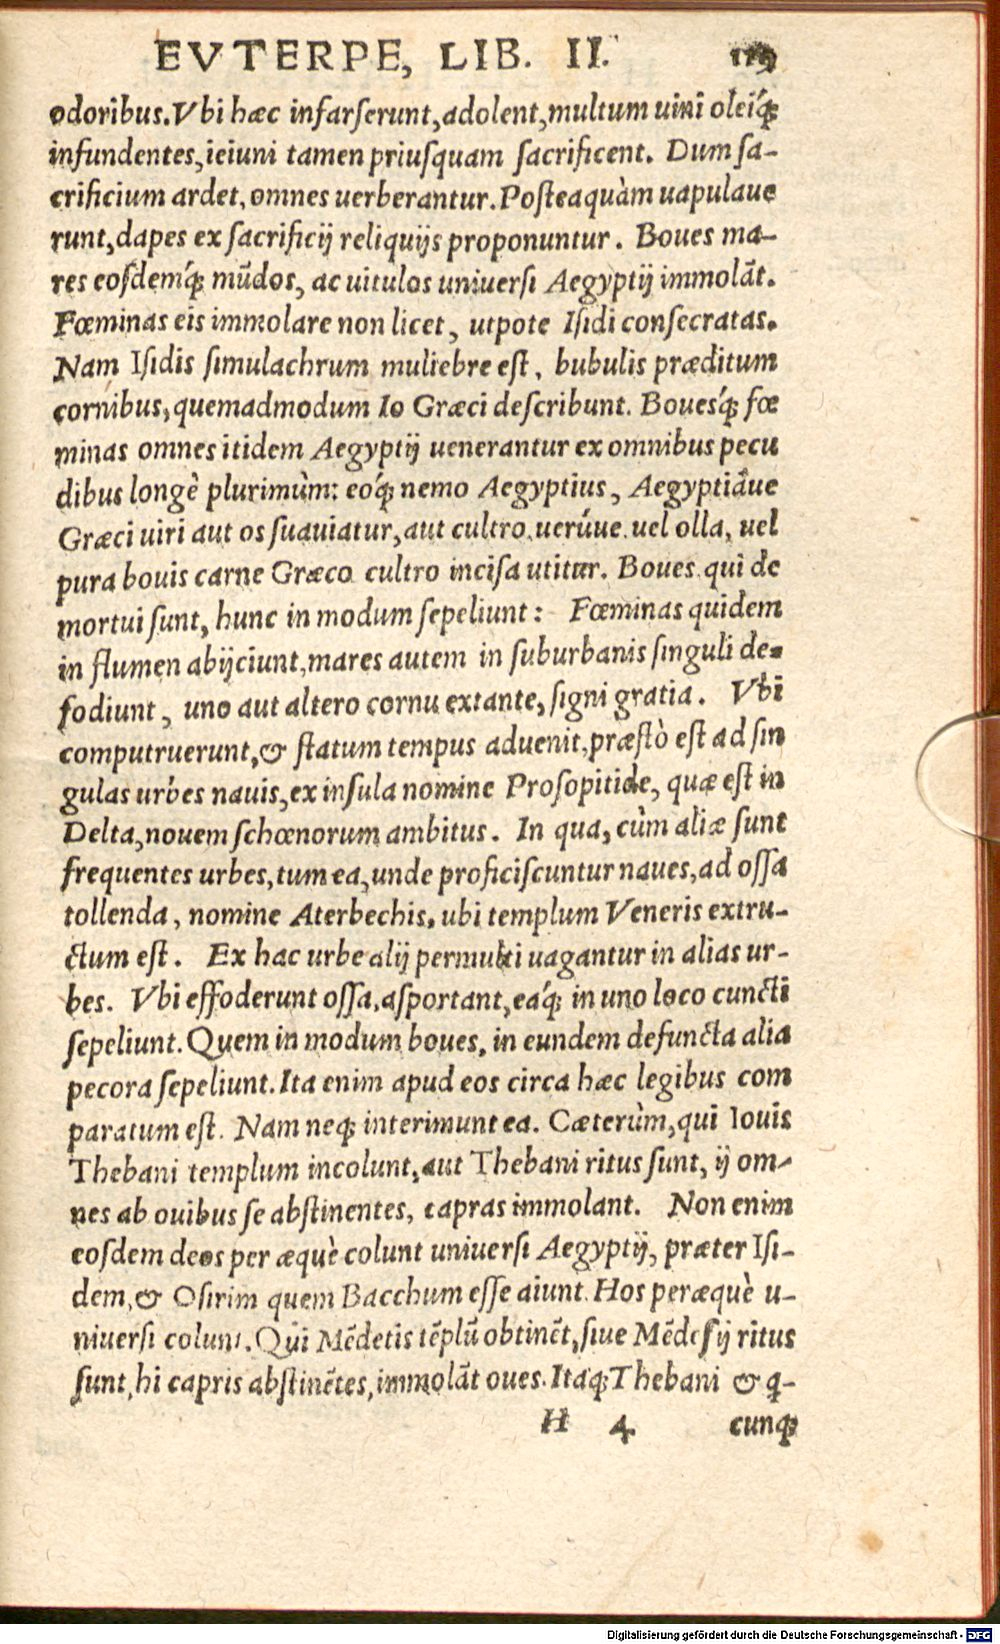 EVTERPE, LIB. II. 119
odoribus. Vbi hæc infarſerunt, adolent, multum uini oleiq́ꝫ
infundentes, ieiuni tamen priuſquam ſacrificent. Dum ſa-
crificium ardet, omnes uerberantur. Poſteaquàm uapulaue
runt, dapes ex ſacrificij reliquijs proponuntur. Boues ma-
res eoſdemq́ꝫ mũdos, ac uitulos uniuerſi Aegyptij immolãt.
Fœminas eis immolare non licet, utpote Iſidi conſecratas.
Nam Iſidis ſimulachrum muliebre eſt, bubulis præditum
cornibus, quemadmodum Io Græci deſcribunt. Bouesq́ꝫ fœ
minas omnes itidem Aegyptij uenerantur ex omnibus pecu
dibus longè plurimùm: eoq́ꝫ nemo Aegyptius, Aegyptiáue
Græci uiri aut os ſuauiatur, aut cultro, uerúue, uel olla, uel
pura bouis carne Græco cultro inciſa utitur. Boues qui de
mortui ſunt, hunc in modum ſepeliunt: Fœminas quidem
in flumen abijciunt, mares autem in ſuburbanis ſinguli de-
fodiunt, uno aut altero cornu extante, ſigni gratia. Vbi
computruerunt, & ſtatum tempus aduenit, præſtò eſt ad ſin
gulas urbes nauis, ex inſula nomine Proſopitide, quæ eſt in
Delta, nouem ſchœnorum ambitus. In qua, cùm aliæ ſunt
frequentes urbes, tum ea, unde proficiſcuntur naues, ad oſſa
tollenda, nomine Aterbechis, ubi templum Veneris extru-
ctum eſt. Ex hac urbe alij permulti uagantur in alias ur-
bes. Vbi effoderunt oſſa, aſportant, eaq́ꝫ in uno loco cuncti
ſepeliunt. Quem in modum boues, in eundem defuncta alia
pecora ſepeliunt. Ita enim apud eos circa hæc legibus com
paratum eſt. Nam neqꝫ interimunt ea. Cæterùm, qui Iouis
Thebani templum incolunt, aut Thebani ritus ſunt, ij om-
nes ab ouibus ſe abſtinentes, capras immolant. Non enim
eoſdem deos per æquè colunt uniuerſi Aegyptij, præter Iſi-
dem, & Oſirim quem Bacchum eſſe aiunt. Hos peræquè u-
niuerſi colunt. Qui Mẽdetis tẽplũ obtinẽt, ſiue Mẽdeſij ritus
ſunt, hi capris abſtinẽtes, immolãt oues. Itaqꝫ Thebani & q̃-
H 4 cunqꝫ
Digitalisierung gefördert durch die Deutsche Forschungsgemeinschaft - DFG